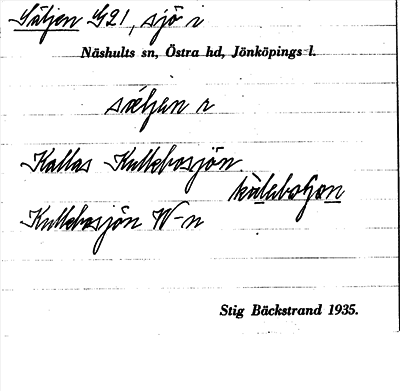 Säljen G21, sjö i
Näshults sn, Östra hd, Jönköpings l.
sæljɐn r
Kallas Kullebosjön
Kullebosjön W-n
Stig Bäckstrand 1935.